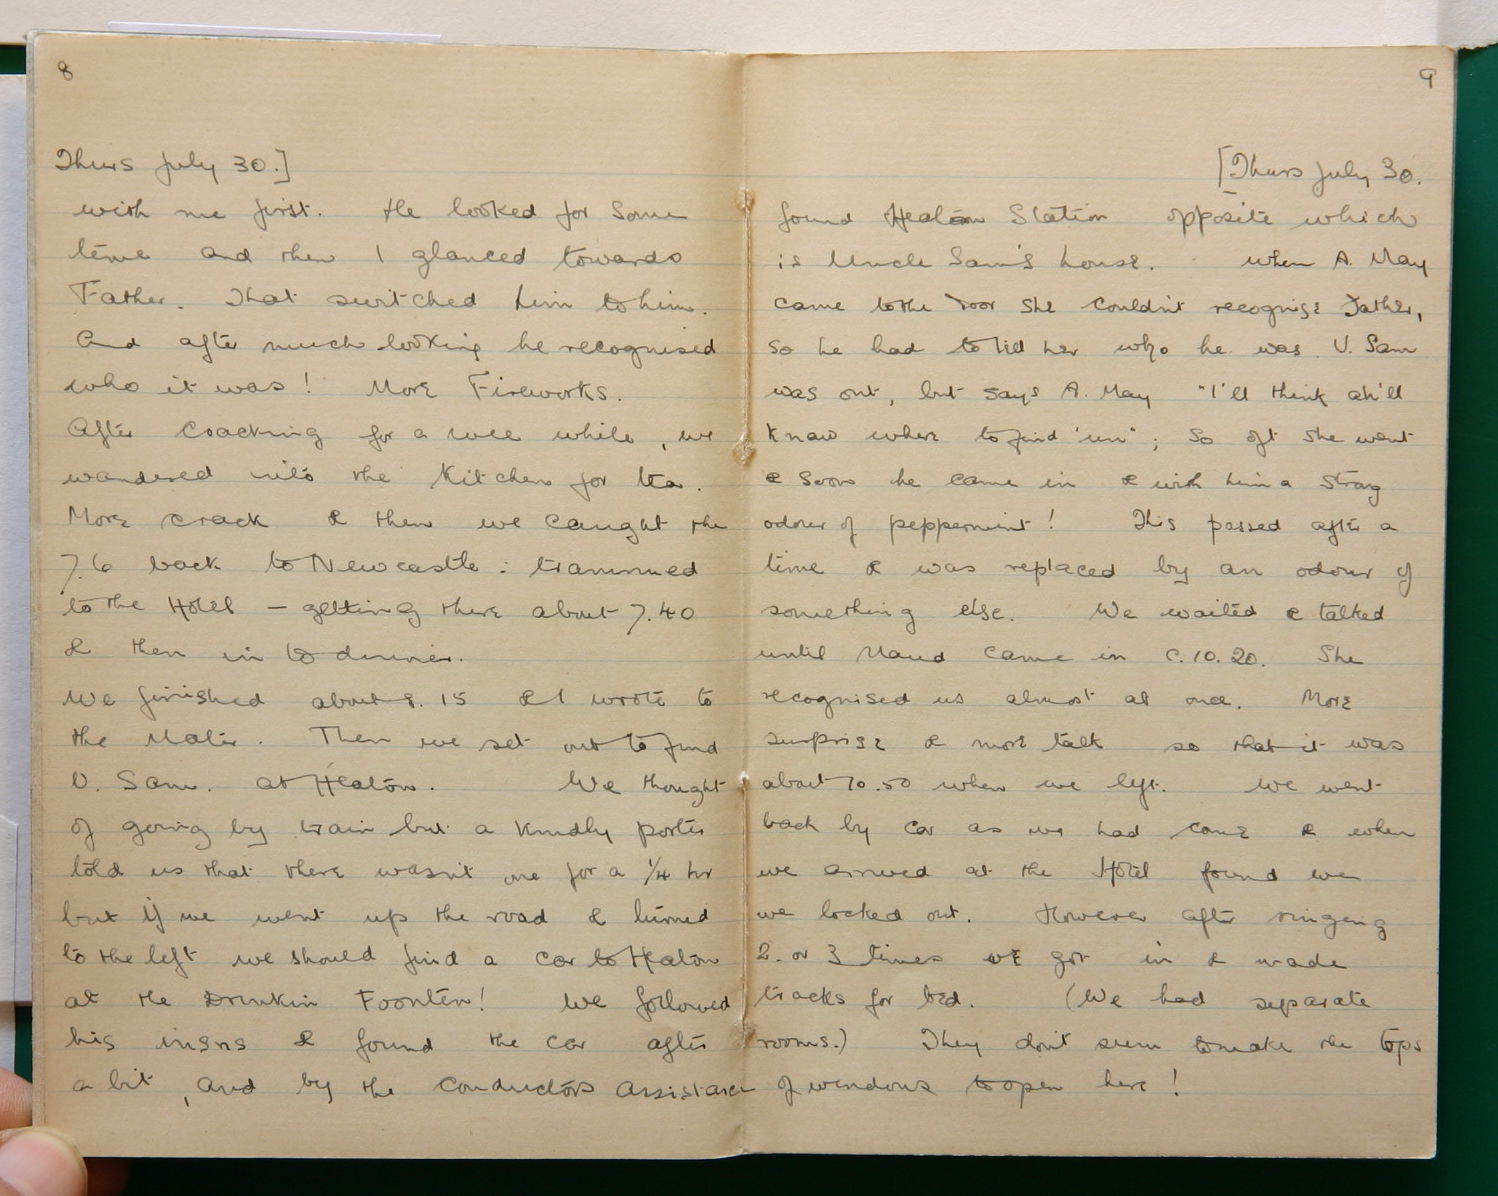 8
Thurs July 30.]
with me first. He looked for some
time and then I glanced towards
Father. That switched him to him.
And after much looking he recognised
who it was! More Fireworks.
After coacking for a wee while, we
wandered into the kitchen for tea.
More crack & then we caught the
7.6 back to Newcastle: trammed
to the Hotel – getting there about 7.40
& then in to dinner.
We finished about 8.15 & I wrote to
the Mater. Then we set out to find
U. Sam. at Heaton. We thought
of going by train but a kindly porter
told us that there wasn't one for a 1/4 hr
but if we went up the road & turned
to the left we should find a car to Heaton
at the Drinkin Foonten! We followed
his insns & found the car after
a bit, and by the conductors assistance
9
[Thurs July 30.
found Heaton Station opposite which
is Uncle Sam's house. When A. May
came to the door she couldn't recognise Father,
so he had to tell her who he was. U. Sam
was out, but says A. May "I'll think ah'll
know where to find 'un"; so off she went
& soon he came in & with him a strong
odour of peppermint! This passed after a
time & was replaced by an odour of
something else. We waited & talked
until Maud came in c.10.20. She
recognised us almost at once. More
surprise & more talk so that it was
about 10.50 when we left. We went
back by car as we had come & when
we arrived at the Hotel found we
we locked out. However after ringing
2 or 3 times we got in & made
tracks for bed. (We had separate
rooms.) They don't seem to make the tops
of windows to open here!